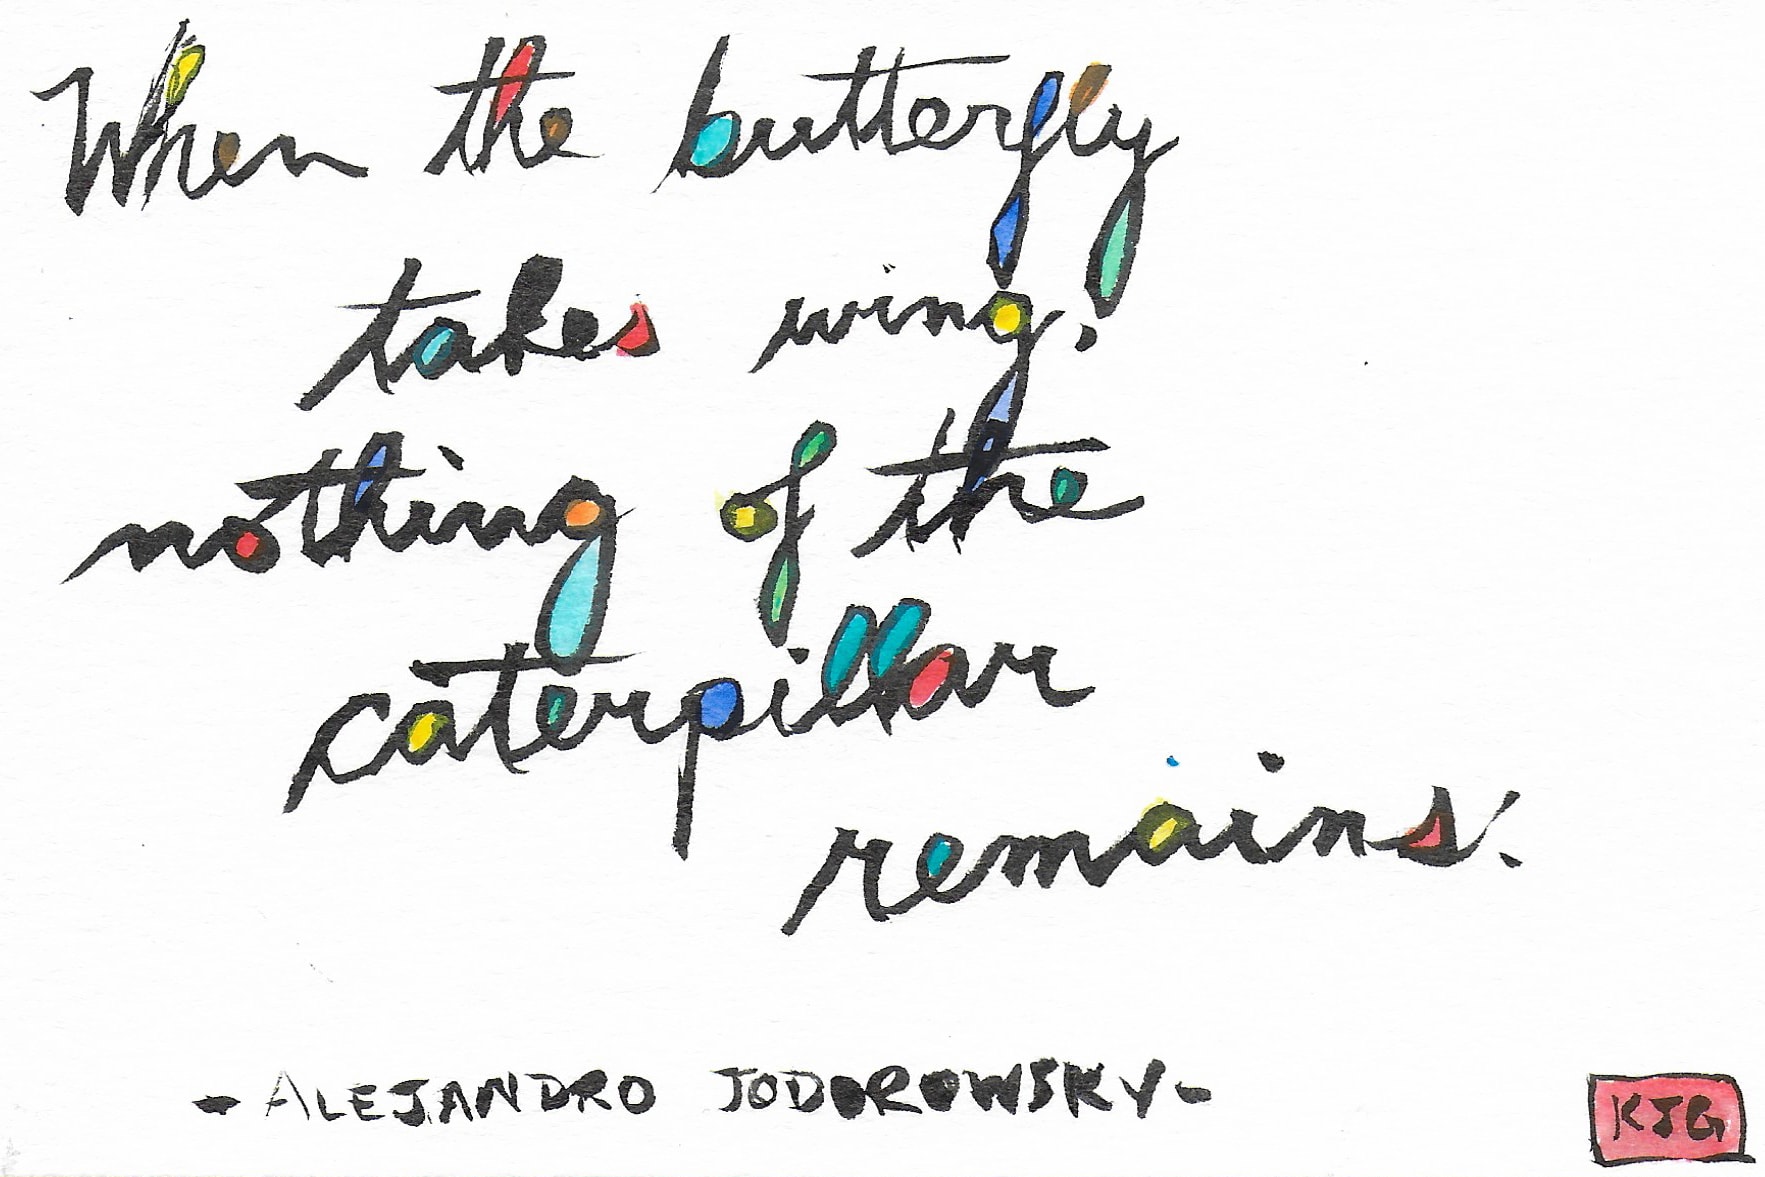 When the butterfly
takes wing,
nothing of the
caterpillar
remains.
- ALEJANDRO JODOROWSKY -
KJG